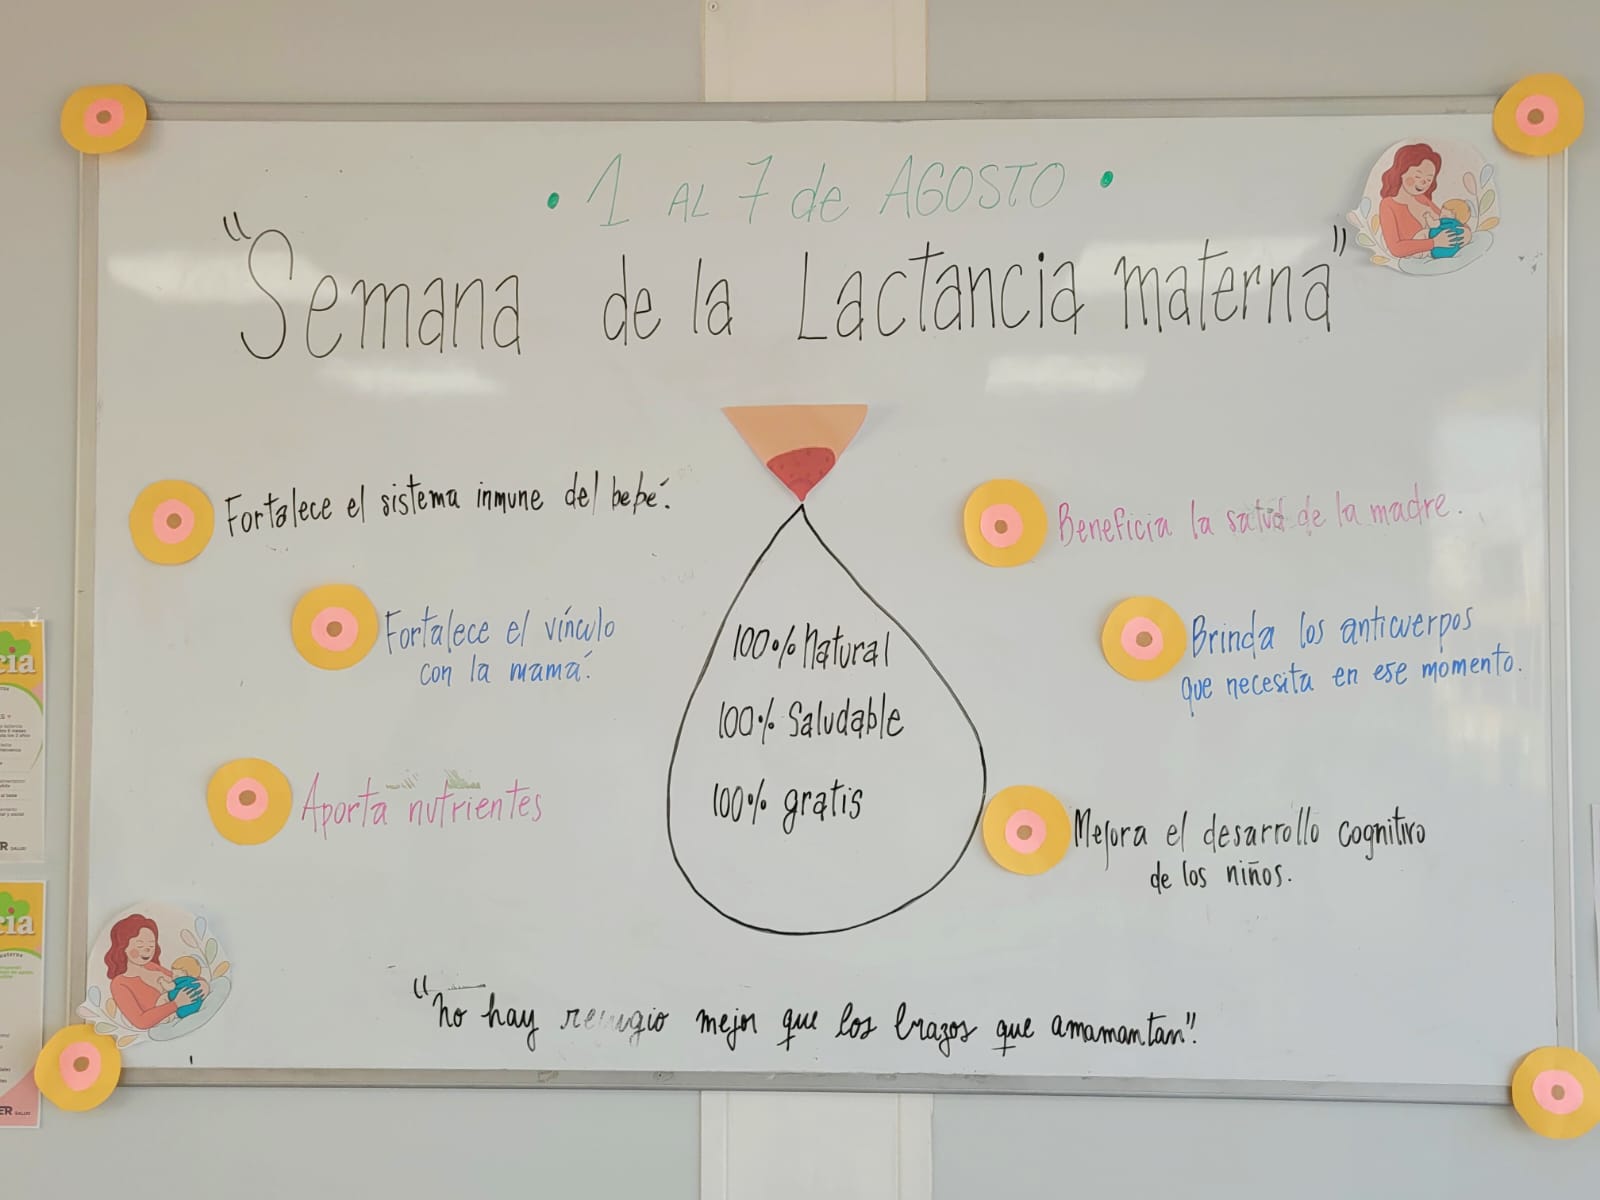 • 1 AL 7 de AGOSTO •
"Semana de la Lactancia materna"
Fortalece el sistema inmune del bebé.
Fortalece el vínculo
con la mamá.
Aporta nutrientes
100% Natural
100% Saludable
100% gratis
Beneficia la salud de la madre.
Brinda los anticuerpos
que necesita en ese momento.
Mejora el desarrollo cognitivo
de los niños.
"No hay refugio mejor que los brazos que amamantan".
cia
SALUD
cia
ER SALUD